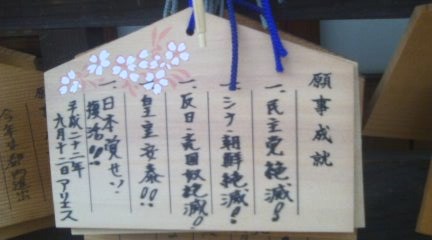 願事成就
一、民主党絶滅!
一、シナ・朝鮮絶滅!
一、反日・売国奴絶滅!
一、皇室安泰!!
一、日本覚せい!
復活!!
平成二十二年
九月十二日 アリエス